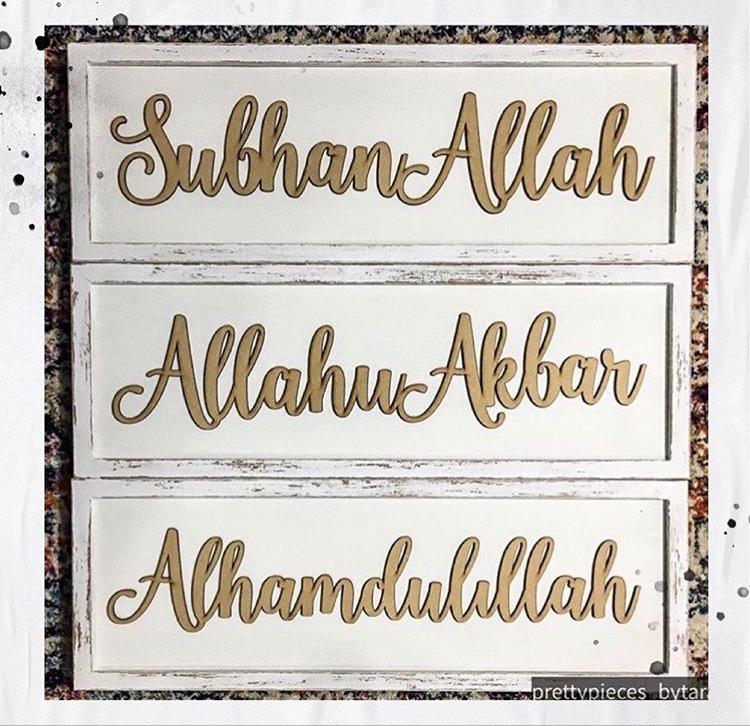 SubhanAllah
AllahuAkbar
Alhamdulillah
prettypieces_bytar